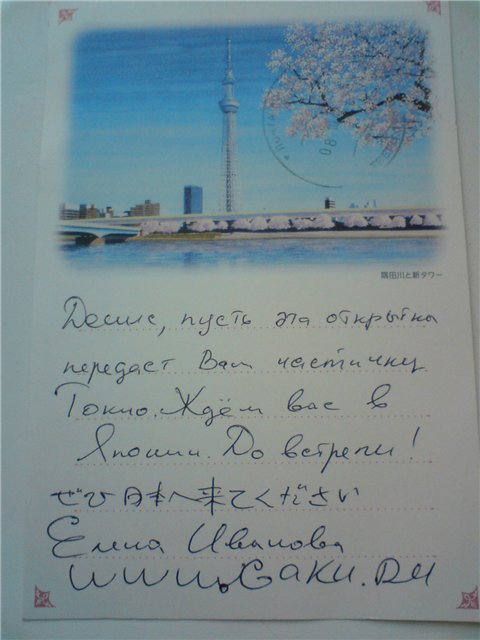 隅田川と新タワー
Денис, пусть эта открытка
передаст Вам частичку
Токио. Ждём вас в
Японии. До встречи!
ぜひ日本へ来てください
Елена Иванова
www.Gaku.Ru